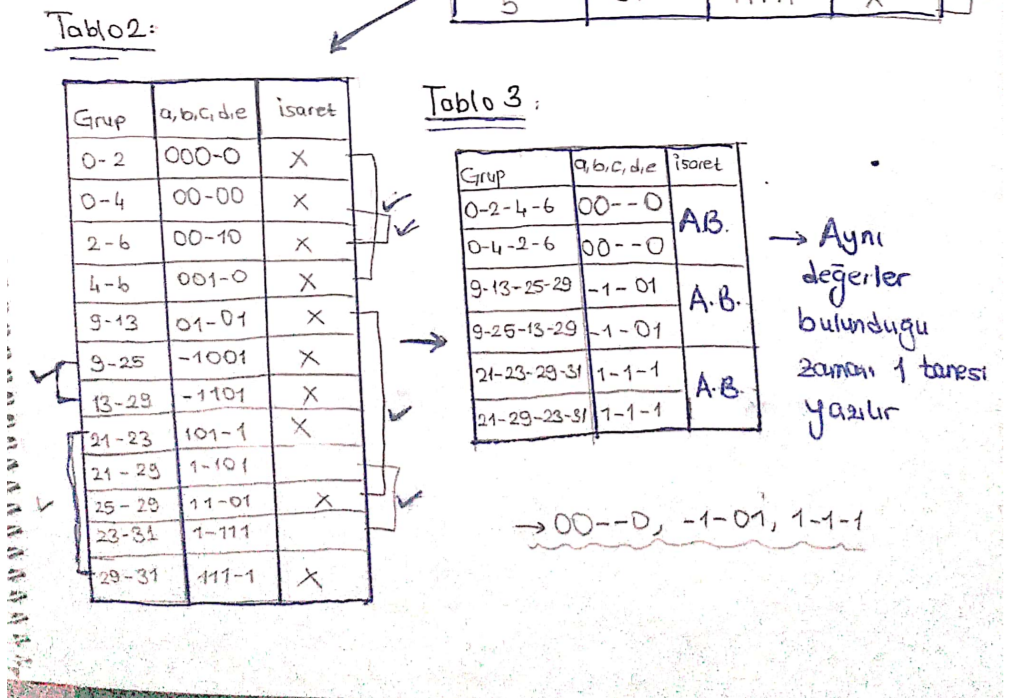 5 11111 X
Tablo2:
Grup a,b,c,d,e isaret
0-2 000-0 X
0-4 00-00 X
2-6 00-10 X
4-6 001-0 X
9-13 01-01 X
9-25 -1001 X
13-29 -1101 X
21-23 101-1 X
21-29 1-101
25-29 11-01 X
23-31 1-111
29-31 111-1 X
Tablo 3:
Grup a,b,c,d,e isaret
0-2-4-6 00--0 A.B.
0-4-2-6 00--0
9-13-25-29 -1-01 A.B.
9-25-13-29 -1-01
21-23-29-31 1-1-1 A.B.
21-29-23-31 1-1-1
→ Aynı
değerler
bulunduğu
zaman 1 tanesi
yazılır
→ 00--0, -1-01, 1-1-1